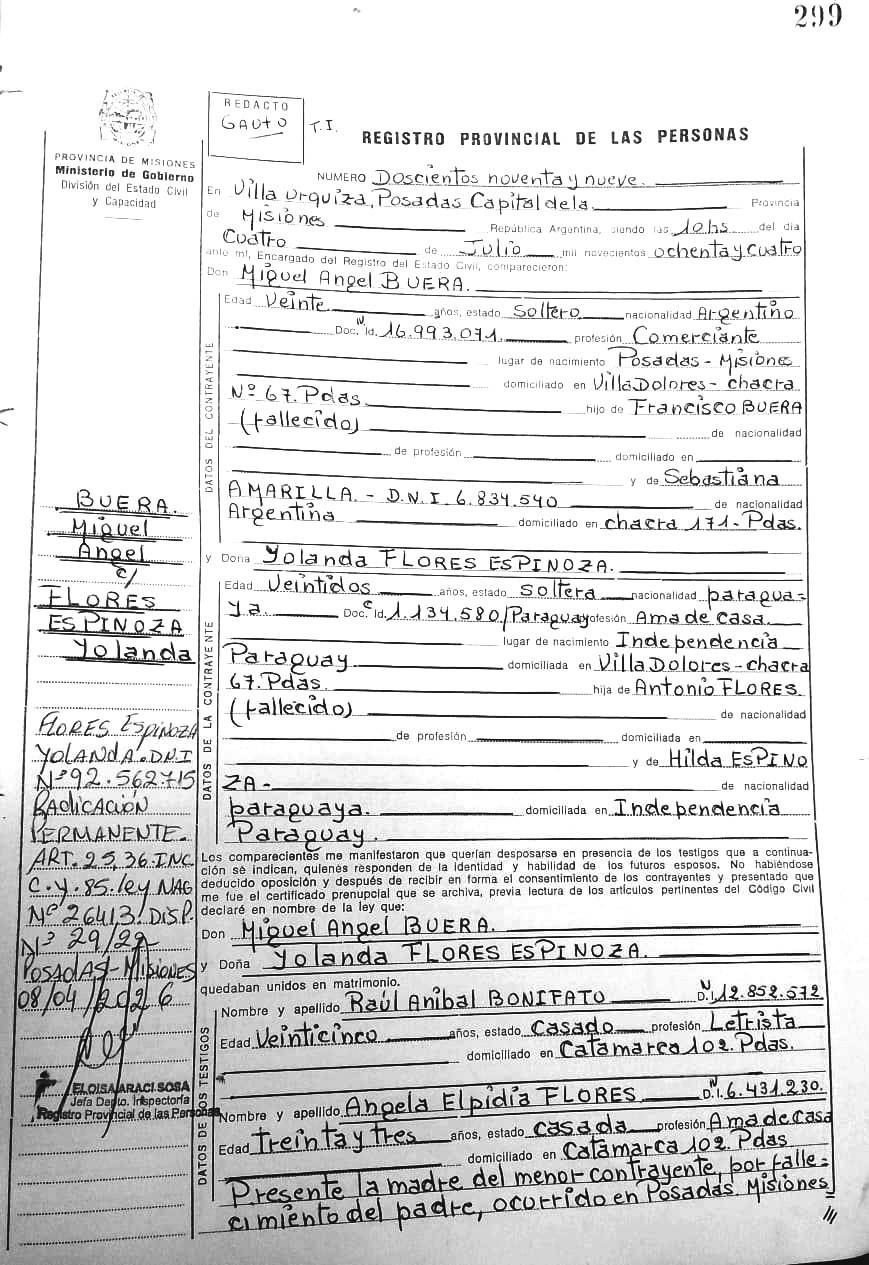 299
REDACTO
GAUTO
T.I.
REGISTRO PROVINCIAL DE LAS PERSONAS
PROVINCIA DE MISIONES
Ministerio de Gobierno
División del Estado Civil
y Capacidad
NUMERO Doscientos noventa y nueve.
En Villa Urquiza, Posadas Capital de la Provincia
de Misiones República Argentina, siendo las 10hs del día
Cuatro de Julio mil novecientos ochenta y cuatro
ante mí, Encargado del Registro del Estado Civil, comparecieron:
Don Miguel Angel BUERA.
DATOS DEL CONTRAYENTE
Edad Veinte años, estado Soltero nacionalidad Argentino
Doc. N Id. 16.993.071. profesión Comerciante
lugar de nacimiento Posadas - Misiones
domiciliado en Villa Dolores - chacra
Nº 67. Pdas. hijo de Francisco BUERA
(fallecido) de nacionalidad
de profesión domiciliado en
y de Sebastiana
AMARILLA. - D.N.I. 6.834.540 de nacionalidad
Argentina domiciliado en chacra 171 - Pdas.
y Dona Yolanda FLORES ESPINOZA.
DATOS DE LA CONTRAYENTE
Edad Veintidos años, estado Soltera nacionalidad paragua-
ya Doc. C Id. 1.134.580/Paraguay profesión Ama de casa.
lugar de nacimiento Independencia
Paraguay domiciliada en Villa Dolores - chacra
67. Pdas. hija de Antonio FLORES
(fallecido) de nacionalidad
de profesión domiciliada en
y de Hilda ESPINO
ZA - de nacionalidad
paraguaya. domiciliada en Independencia
Paraguay.
Los comparecientes me manifestaron que querían desposarse en presencia de los testigos que a continua-
ción se indican, quienes responden de la identidad y habilidad de los futuros esposos. No habiéndose
deducido oposición y después de recibir en forma el consentimiento de los contrayentes y presentado que
me fue el certificado prenupcial que se archiva, previa lectura de los artículos pertinentes del Código Civil
declaré en nombre de la ley que:
Don Miguel Angel BUERA.
y Doña Yolanda FLORES ESPINOZA.
quedaban unidos en matrimonio.
DATOS DE LOS TESTIGOS
Nombre y apellido Raúl Anibal BONIFATO D.N.I. 12.852.572
Edad Veinticinco años, estado Casado profesión Letrista
domiciliado en Catamarca 102. Pdas.
Nombre y apellido Angela Elpidia FLORES D.N.I. 6.431.230.
Edad treinta y tres años, estado casada profesión Ama de casa
domiciliado en Catamarca 102. Pdas
Presente la madre del menor contrayente, por falle=
cimiento del padre, ocurrido en Posadas. Misiones
///
BUERA.
Miguel
Angel
c/
FLORES
ESPINOZA
Yolanda
FLORES ESPINOZA
YOLANDA. DNI
Nº 92.562715
RADICACIÓN
PERMANENTE.
ART. 25, 36. INC
C. y. 85. ley NAC
Nº 26413. DISP.
Nº 29/22
POSADAS - MISIONES
08/04/2026
ELOISA ARACI SOSA
Jefa Depto. Inspectoría
Registro Provincial de las Personas